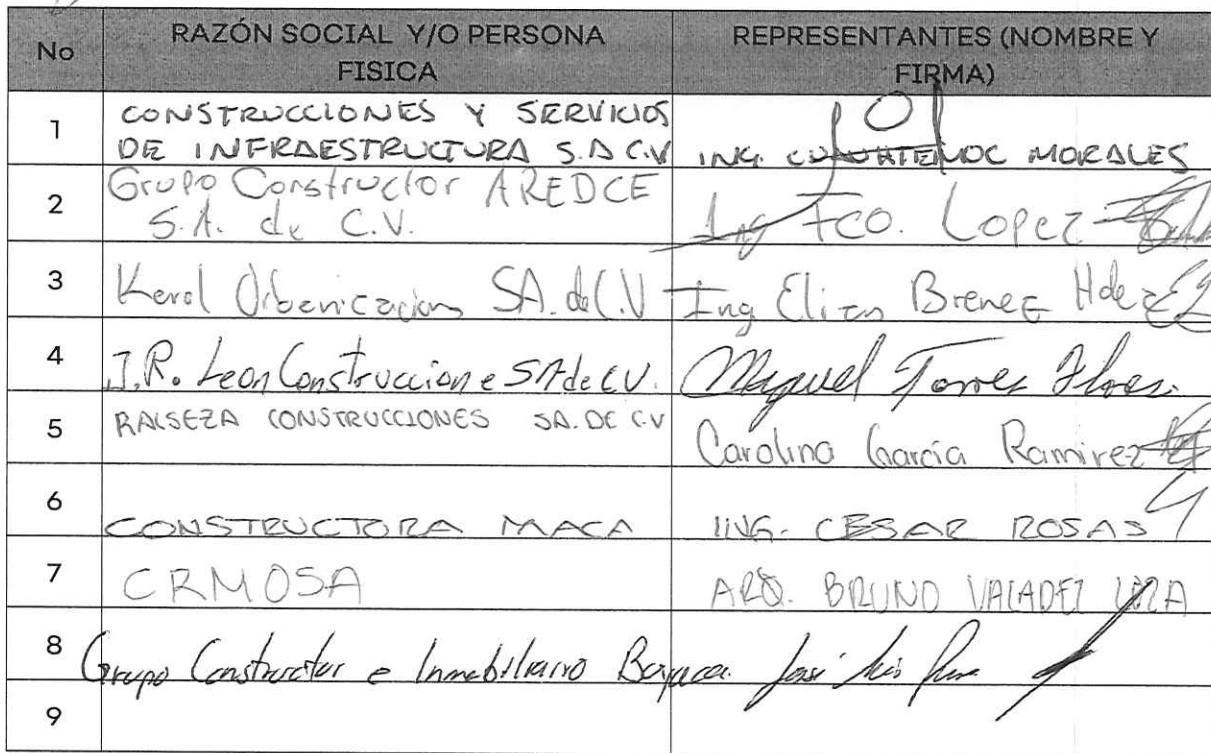 No RAZÓN SOCIAL Y/O PERSONA FISICA REPRESENTANTES (NOMBRE Y FIRMA)
1 CONSTRUCCIONES Y SERVICIOS
DE INFRAESTRUCTURA S.A C.V ING. CUAUHTEMOC MORALES
2 Grupo Constructor AREDCE
S.A. de C.V. Ing Fco. Lopez
3 Kerol SA. de C.V Ing Hdez
4 J.R. Leon Construccione SA de C.V. Miguel Torres Flores
5 RAISEZA CONSTRUCCIONES SA. DE C.V Carolina García Ramirez
6 CONSTRUCTORA MACA ING. CESAR ROSAS
7 CRMOSA ARQ. BRUNO VALADEZ
8 Grupo Constructor e Inmobiliario José Luis
9